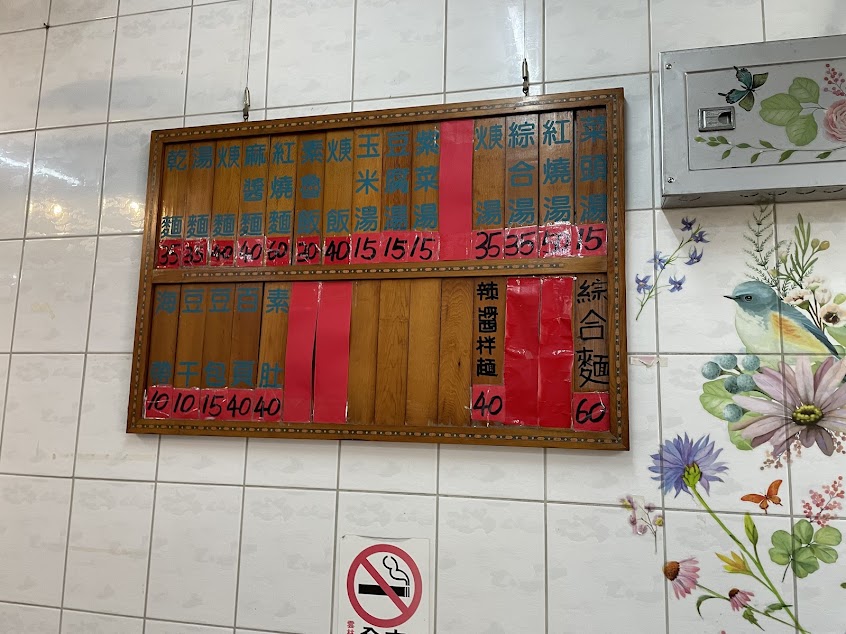 乾麵 35
湯麵 35
焿麵 40
麻醬麵 40
紅燒麵 60
素魯飯 20
焿飯 40
玉米湯 15
豆腐湯 15
紫菜湯 15
焿湯 35
綜合湯 35
紅燒湯 50
菜頭湯 15
海帶 10
豆干 10
豆包 15
百頁 40
素肚 40
辣醬拌麵 40
綜合麵 60
雲林